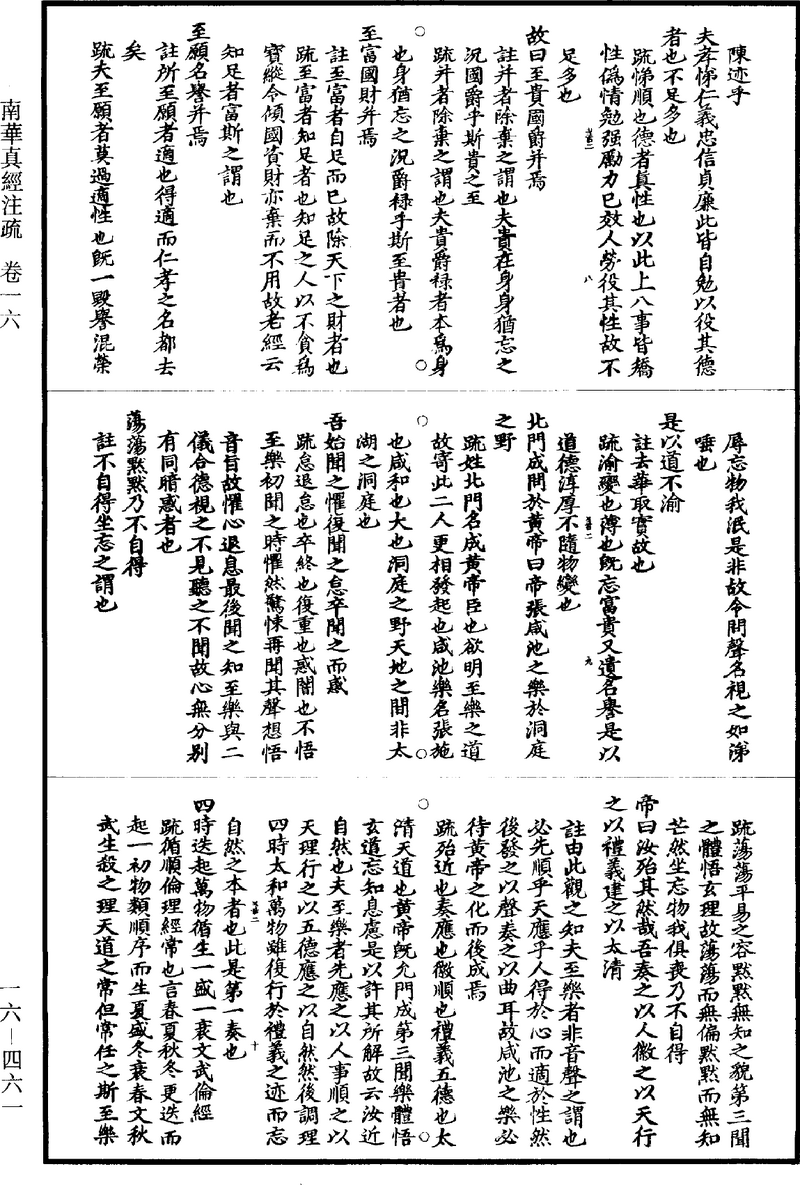 南華真經注疏　卷一六
一六—四六一
陳迹乎
夫孝悌仁義忠信貞廉此皆自勉以役其德
者也不足多也
疏悌順也德者真性也以此上八事皆矯
性偽情勉强勵力已效人勞役其性故不
足多也
故曰至貴國爵并焉
註并者除棄之謂也夫貴在身身猶忘之
況國爵乎斯貴之至
疏并者除棄之謂也夫貴爵祿者本為身
也身猶忘之況爵祿乎斯至貴者也
至富國財并焉
註至富者自足而已故除天下之財者也
疏至富者知足者也知足之人以不貪為
寶縱令傾國資財亦棄而不用故老經云
知足者富斯之謂也
至願名譽并焉
註所至願者適也得適而仁孝之名都去
矣
疏夫至願者莫過適性也既一毀譽混榮
辱忘物我泯是非故令問聲名視之如涕
唾也
是以道不渝
註去華取實故也
疏渝變也薄也既忘富貴又遺名譽是以
道德淳厚不隨物變也
北門成問於黃帝曰帝張咸池之樂於洞庭
之野
疏姓北門名成黃帝臣也欲明至樂之道
故寄此二人更相發起也咸池樂名張施
也咸和也大也洞庭之野天地之間非太
湖之洞庭也
吾始聞之懼復聞之怠卒聞之而惑
疏怠退息也卒終也復重也惑闇也不悟
至樂初聞之時懼然驚悚再聞其聲想悟
音旨故懼心退息最後聞之知至樂與二
儀合德視之不見聽之不聞故心無分別
有同暗惑者也
蕩蕩默默乃不自得
註不自得坐忘之謂也
疏蕩蕩平易之容默默無知之貌第三聞
之體悟玄理故蕩蕩而無偏默默而無知
芒然坐忘物我俱喪乃不自得
帝曰汝殆其然哉吾奏之以人徽之以天行
之以禮義建之以太清
註由此觀之知夫至樂者非音聲之謂也
必先順乎天應乎人得於心而適於性然
後發之以聲奏之以曲耳故咸池之樂必
待黃帝之化而後成焉
疏殆近也奏應也徽順也禮義五德也太
清天道也黃帝既允門成第三聞樂體悟
玄道忘知息慮是以許其所解故云汝近
自然也夫至樂者先應之以人事順之以
天理行之以五德應之以自然然後調理
四時太和萬物雖復行於禮義之迹而忘
自然之本者也此是第一奏也
四時迭起萬物循生一盛一衰文武倫經
疏循順倫理經常也言春夏秋冬更迭而
起一初物類順序而生夏盛冬衰春文秋
武生殺之理天道之常但常任之斯至樂